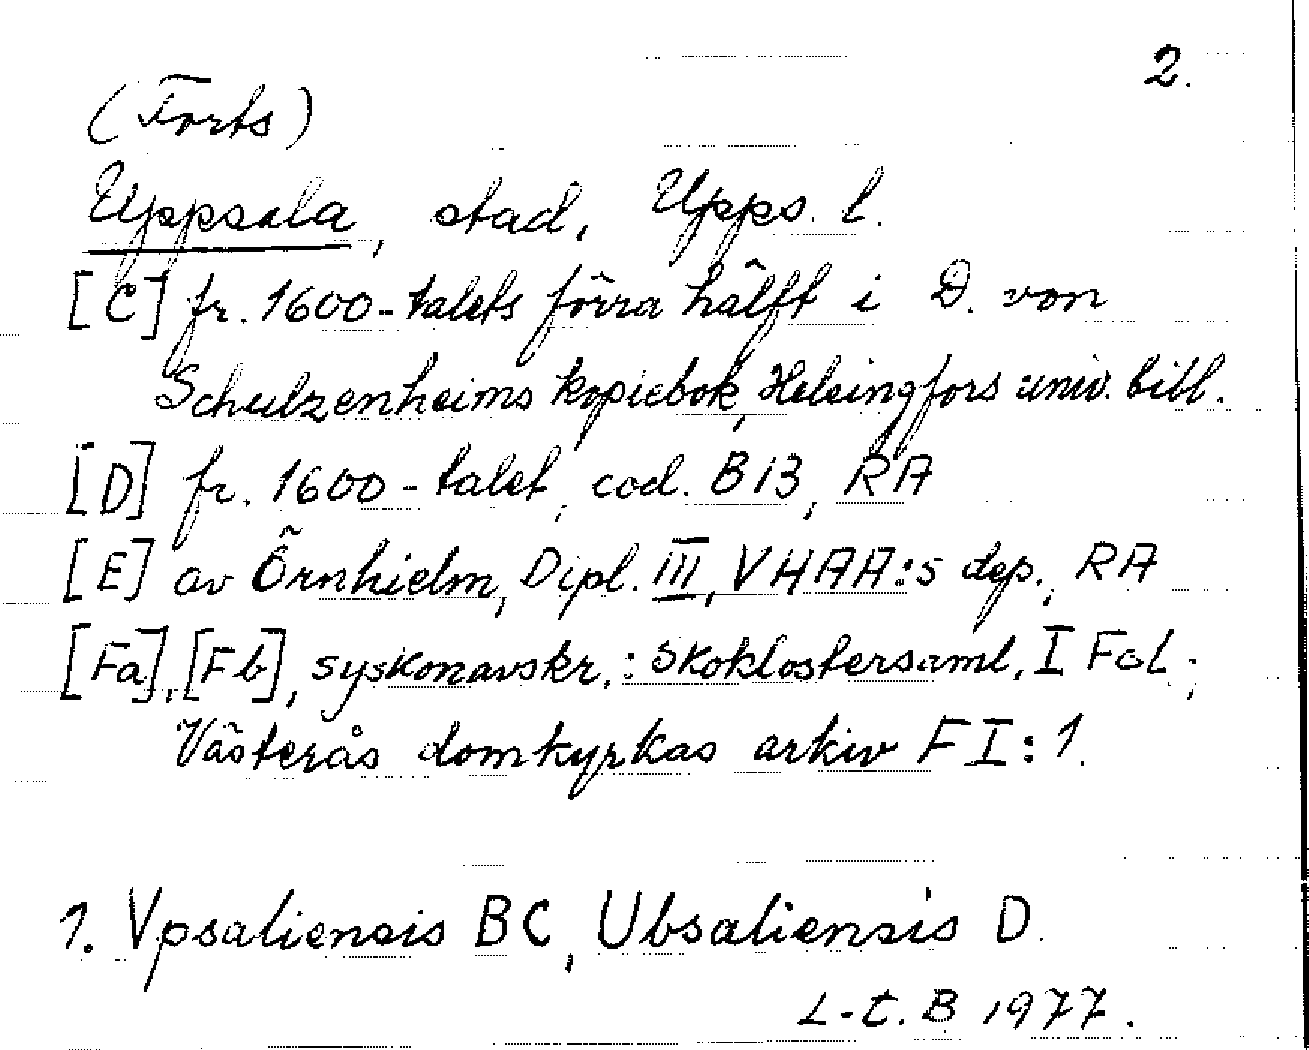 2.
(Forts)
Uppsala, stad, Upps. l.
[C] fr. 1600-talets förra hälft i D. von
Schulzenheims kopiebok, Helsingfors univ. bibl.
[D] fr. 1600-talet, cod. B 13, RA
[E] av Örnhielm, Dipl. III, VHAA:s dep., RA
[Fa], [Fb], syskonavskr.: Skoklostersaml. I Fol.;
Västerås domkyrkas arkiv F I:1.
1. Vpsaliensis BC, Ubsaliensis D.
L-t. B 1977.